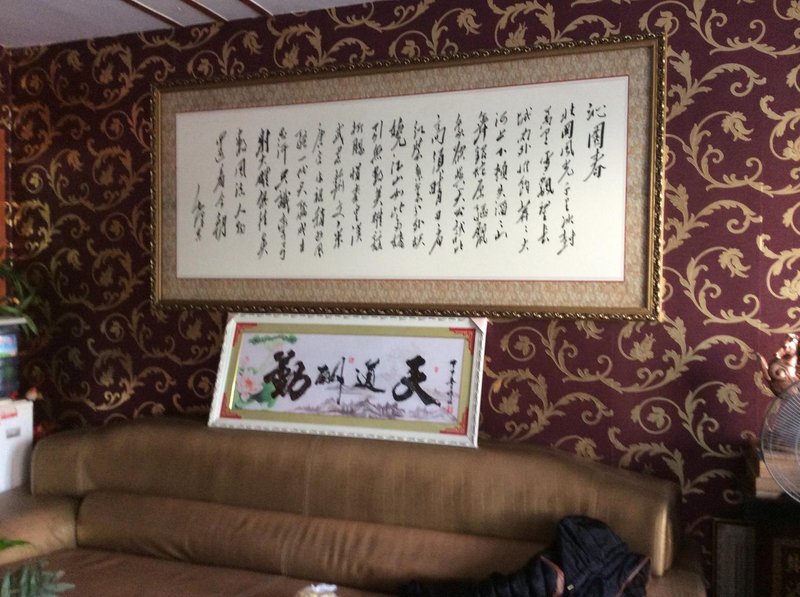 沁園春
北国风光千里冰封
万里雪飘望长
城内外惟余莽莽大
河上下顿失滔滔山
舞银蛇原驰腊
象欲与天公试比
高须晴日看
红装素裹分外妖
娆江山如此多娇
引无数英雄竞
折腰惜秦皇汉
武略输文采
唐宗宋祖稍逊风
骚一代天骄成吉
思汗只识弯弓
射大雕俱往矣
数风流人物
还看今朝
毛泽东
天道酬勤